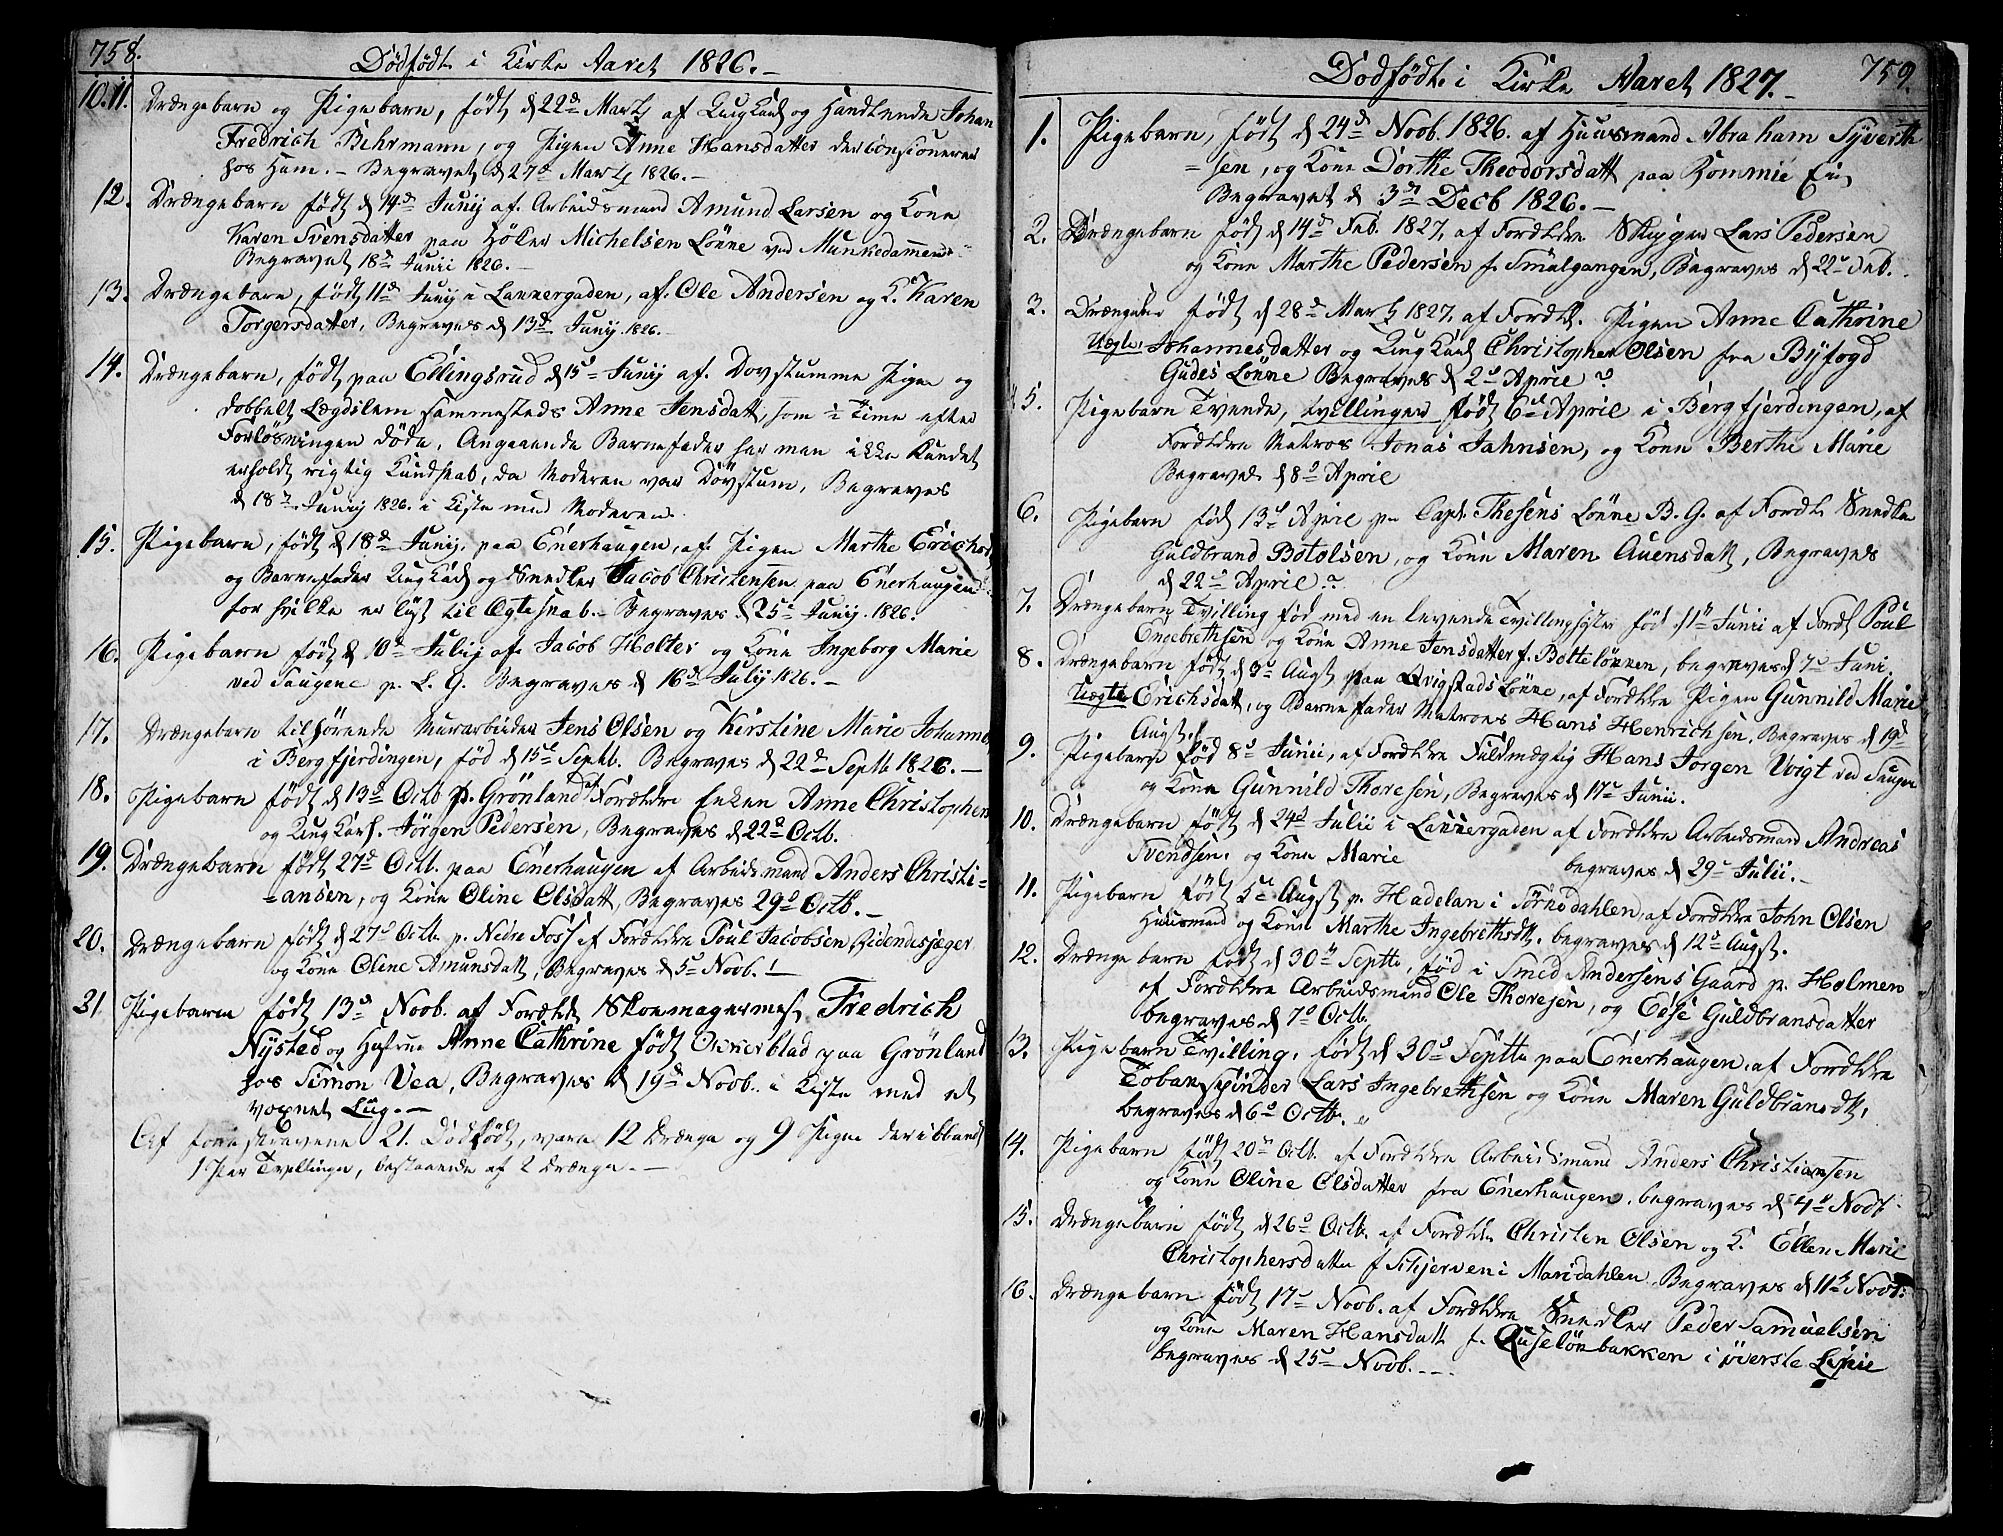 758.
Dødfødte i Kirke Aaret 1826.-
10.11. Drængebarn og Pigebarn, født d 22de Martz af Ungkarl og Handlende Johan
Fredrich Bihrmann, og Pigen Anne Hansdatter der
hos Ham.- Begravet d 27de Martz 1826.-
12. Drængebarn født d 14de Junij af Arbeidsmand Amund Larsen og Kone
Karen Svensdatter paa Høker Michelsen Lønne ved Munkedammen
Begravet 18de Junii 1826.-
13. Drængebarn, født 11de Junij i Lakkergaden, af Ole Andersen og K. Karen
Torgersdatter, Begraves d 13de Junij 1826.-
14. Drængebarn, født paa Ellingsrud d 15de Junij af Dovstumme Pige og
dobbelt Lægdslem sammesteds Anne Jensdatt, som ½ Time efter
Forløsningen døde, Angaaende Barnefader har man ikke kundet
erholdt rigtig Kundskab, da Moderen var Døvstum, Begraves
d 18de Junij 1826. i Kiste med Moderen
15. Pigebarn, født d 18de Junij paa Enerhaugen, af Pigen Marthe Erichsd
og Barnefader Ungkarl og Snedker Jacob Christensen paa Enerhaugen
for hvilke er lyst til Ægteskab.- Begraves d 25de Junij 1826.
16. Pigebarn født d 10de Julij af Jacob Holter og Kone Ingeborg Marie
ved Saugene p. L. G. Begraves d 16de Julij 1826.-
17. Drængebarn tilhørende Murarbeider Jens Olsen og Kirstine Marie Johannes
i Bergfjerdingen, fød d 15de Septb. Begraves d 22de Septb 1826.-
18. Pigebarn født d 13de Octb p. Grönland af Forældre Enken Anne Christophers
og Ungkarl. Jørgen Pedersen, Begraves d 22de Octb.
19. Drængebarn født 27de Octb. paa Enerhaugen af Arbeidsmand Anders Christi-
=ansen, og Kone Oline Olsdatt, Begraves 29de Octb.-
20. Drængebarn født d 27de Octb. p. Nedre Foss af Forældre Poul Jacobsen Ridendesjæger
og Kone Oline Amunsdatt, Begraves d 5de Novb.-
21. Pigebarn født 13de Novb. af Forældr Skomagermest. Fredrich
Nysted og Hustrue Anne Cathrine født Okkerblad paa Grönland
hos Simon Vea, Begraves d 19de Novb. i Kiste med et
voxnet Liig.-
Af foranskrevene 21. Dødfødt, vare 12 Drænge og 9 Piger deriblandt
1 Par Tvillinge, bestaaende af 2 Drænge.-
759.
Dødfødte i Kirke Aaret 1827.-
1. Pigebarn, født d 24de Novb. 1826. af Huusmand Abraham Syverts
=sen, og Kone Dorthe Theodorsdatt paa Eie
Begravet d 3de Decb 1826.-
2. Drængebarn født d 14de Feb. 1827, af Forældre Lars Pedersen
og Kone Marthe Pedersen f. Smalgangen, Begraves d 22de Feb.
3. Drængebar født d 28de Martz 1827, af Foræld. Pigen Anne Cathrine
Uægte. Johannesdatter og Ungkarl Christopher Olsen fra Byfogd
Gudes Lønne Begraves d 2de April
5. Pigebarn Tvende, tvillinger født 6de April i Bergfjerdingen, af
Forældre Matros Jonas Jahnsen, og Kone Berthe Marie
Begraved d 8de April
6. Pigebarn fød 13de April p. Capt. Thesens Lønne B. G. af Foræld. Snedker
Guldbrand Botolsen, og Kone Maren Auensdatt, Begraves
d 22de April
7. Drængebarn Tvilling fød med en levende Tvillingsyster fød d 1ste Junii af Foræld Poul
Engebrethsen og Kone Anne Jensdatter f. Bolteløkken, begraves d 7de Juni
8. Drængebarn født d 3de Augst paa Qvigstads Lønne, af Forældre Pigen Gunnild Marie
Uægte Erichsdatt, og Barnefader Matroes Hans Henrichsen, Begraves d 19de
Augst.
9. Pigebarn fød 8de Junii, af Forældre Fuldmægtig Hans Jørgen Voigt ved Saugen
og Kone Gunnild Thoresen, Begraves d 17de Junii.
10. Drængebarn født d 24de Julii i Lakkergaden af Forældre Arbeidsmand Andreas
Svendsen. og Kone Marie begraves d 29de Julii.-
11. Pigebarn født 5te Augst p. Hadelan i Sørkedahlen, af Forældre John Olsen
Huusmand og Kone Marthe Ingebrethsdt. begraves d 12de Augst.
12. Drængebarn født d 30te Septb, fød i Smed Andersens Gaard p. Holmen
af Forældre Arbeidsmand Ole Thoresen, og Edse Guldbransdatter
begraves d 7de Octb.
13. Pigebarn Tvilling, født d 30te Septb paa Enerhaugen, af Forældre
Tobakspinder Lars Ingebrethsen og Kone Maren Guldbransdtt,
begraves d 6de Octb.
14. Pigebarn født 20de Octb. af Forældre Arbeidsmand Anders Christiansen
og Kone Oline Olsdatter fra Enerhaugen, begraves d 4de Novb.
15. Drængebarn født d 26de Octb. af Forældr Christen Olsen og K. Ellen Marie
Christophersdatter f. Skjerven i Maridahlen Begraves d 11te Novb.
16. Drængebarn født 17de Novb. af Forældre Snedker Peder Samuelsen
og Kone Maren Hansdatt f. Ruseløkbakken i øverste Linie
begraves d 25de Novb.---